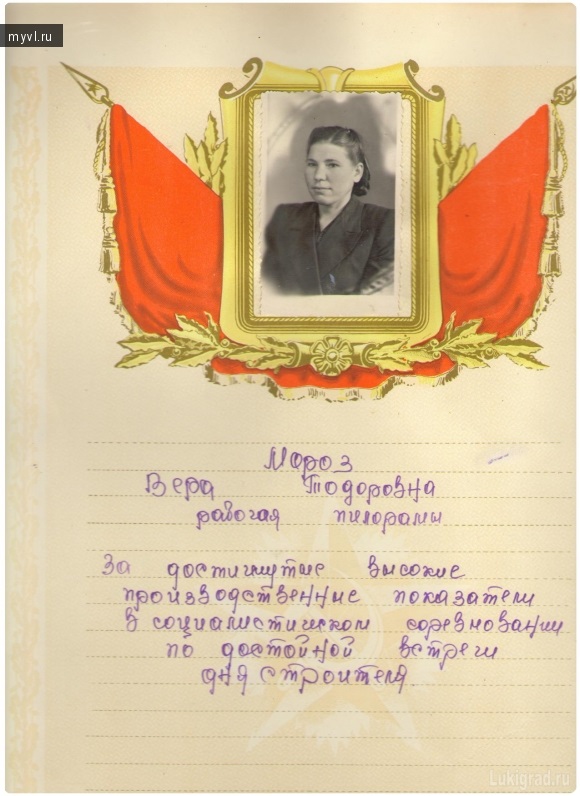 myvl.ru
Мороз
Вера Тодоровна
рабочая пилорамы
За достигнутые высокие
производственные показатели
в социалистическом соревновании
по достойной встречи
дня строителя.
Lukigrad.ru